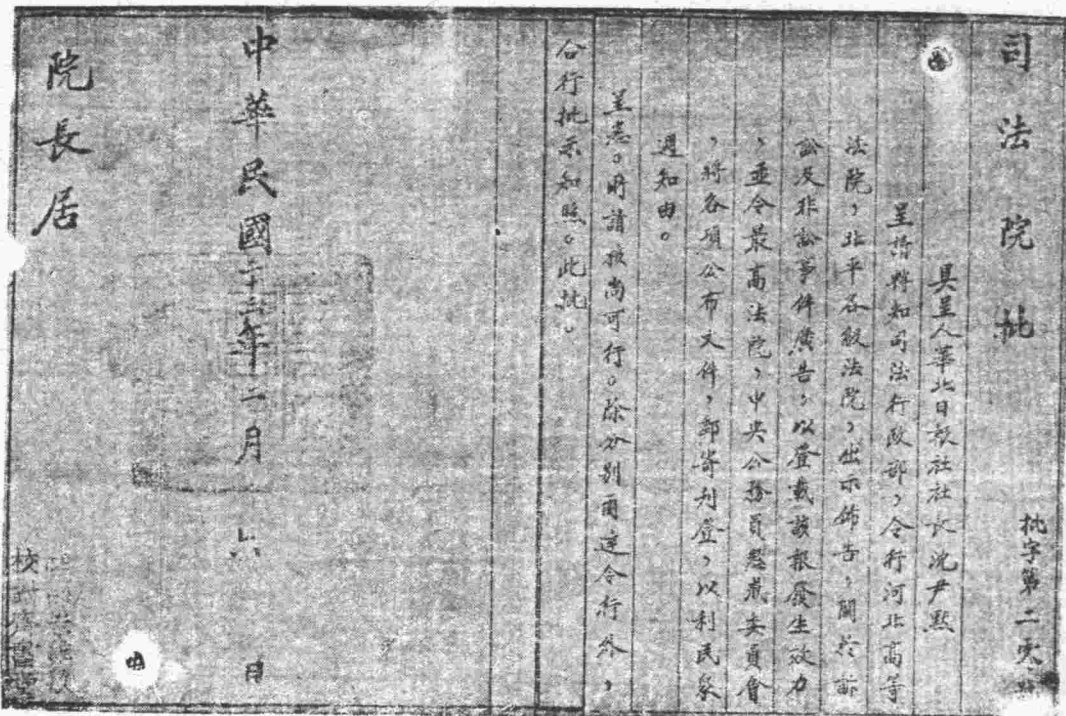 司法院批
批字第二零
具呈人華北日報社社長沈尹默
呈請轉知司法行政部,令行河北高等
法院,北平各級法院,出示佈告,關於訴
訟及非訟事件廣告,以登載該報發生效力
,並令最高法院,中央公務員懲戒委員會
,將各項公布文件,郵寄刊登,以利民眾
週知由。
呈悉。所請核尚可行。除分別函達令行外,
合行批示知照。此批。
中華民國二十三年二月六日
院長居
校對